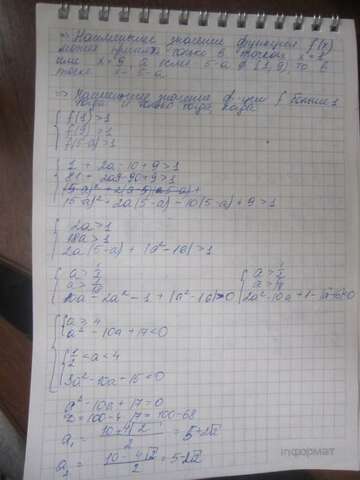 ⇒ Наименьшее значение функция f(x)
может принять только в точках x = 1
или x = 9, а если 5-a ∈ [1, 9], то в
точке x = 5-a.
⇒ Наименьшее значение ф-ции f больше 1
тогда и только тогда, когда
f(1) > 1
f(9) > 1
f(5-a) > 1
1 + 2a - 10 + 9 > 1
81 + 2a9 - 90 + 9 > 1
(5-a)² + 2a(5-a) - 10(5-a) + 9 > 1
2a > 1
18a > 1
2a(5-a) + |a²-16| > 1
a > 1/2
a > 1/18
10a - 2a² - 1 + |a²-16| > 0
a > 1/2
a > 1/18
2a² - 10a + 1 - |a²-16| < 0
a > 4
a² - 10a + 17 < 0
1/2 < a < 4
3a² - 10a - 15 < 0
a² - 10a + 17 = 0
D = 100 - 4·17 = 100 - 68
a₁ = (10 + 4√2)/2 = 5 + 2√2
a₂ = (10 - 4√2)/2 = 5 - 2√2
информат